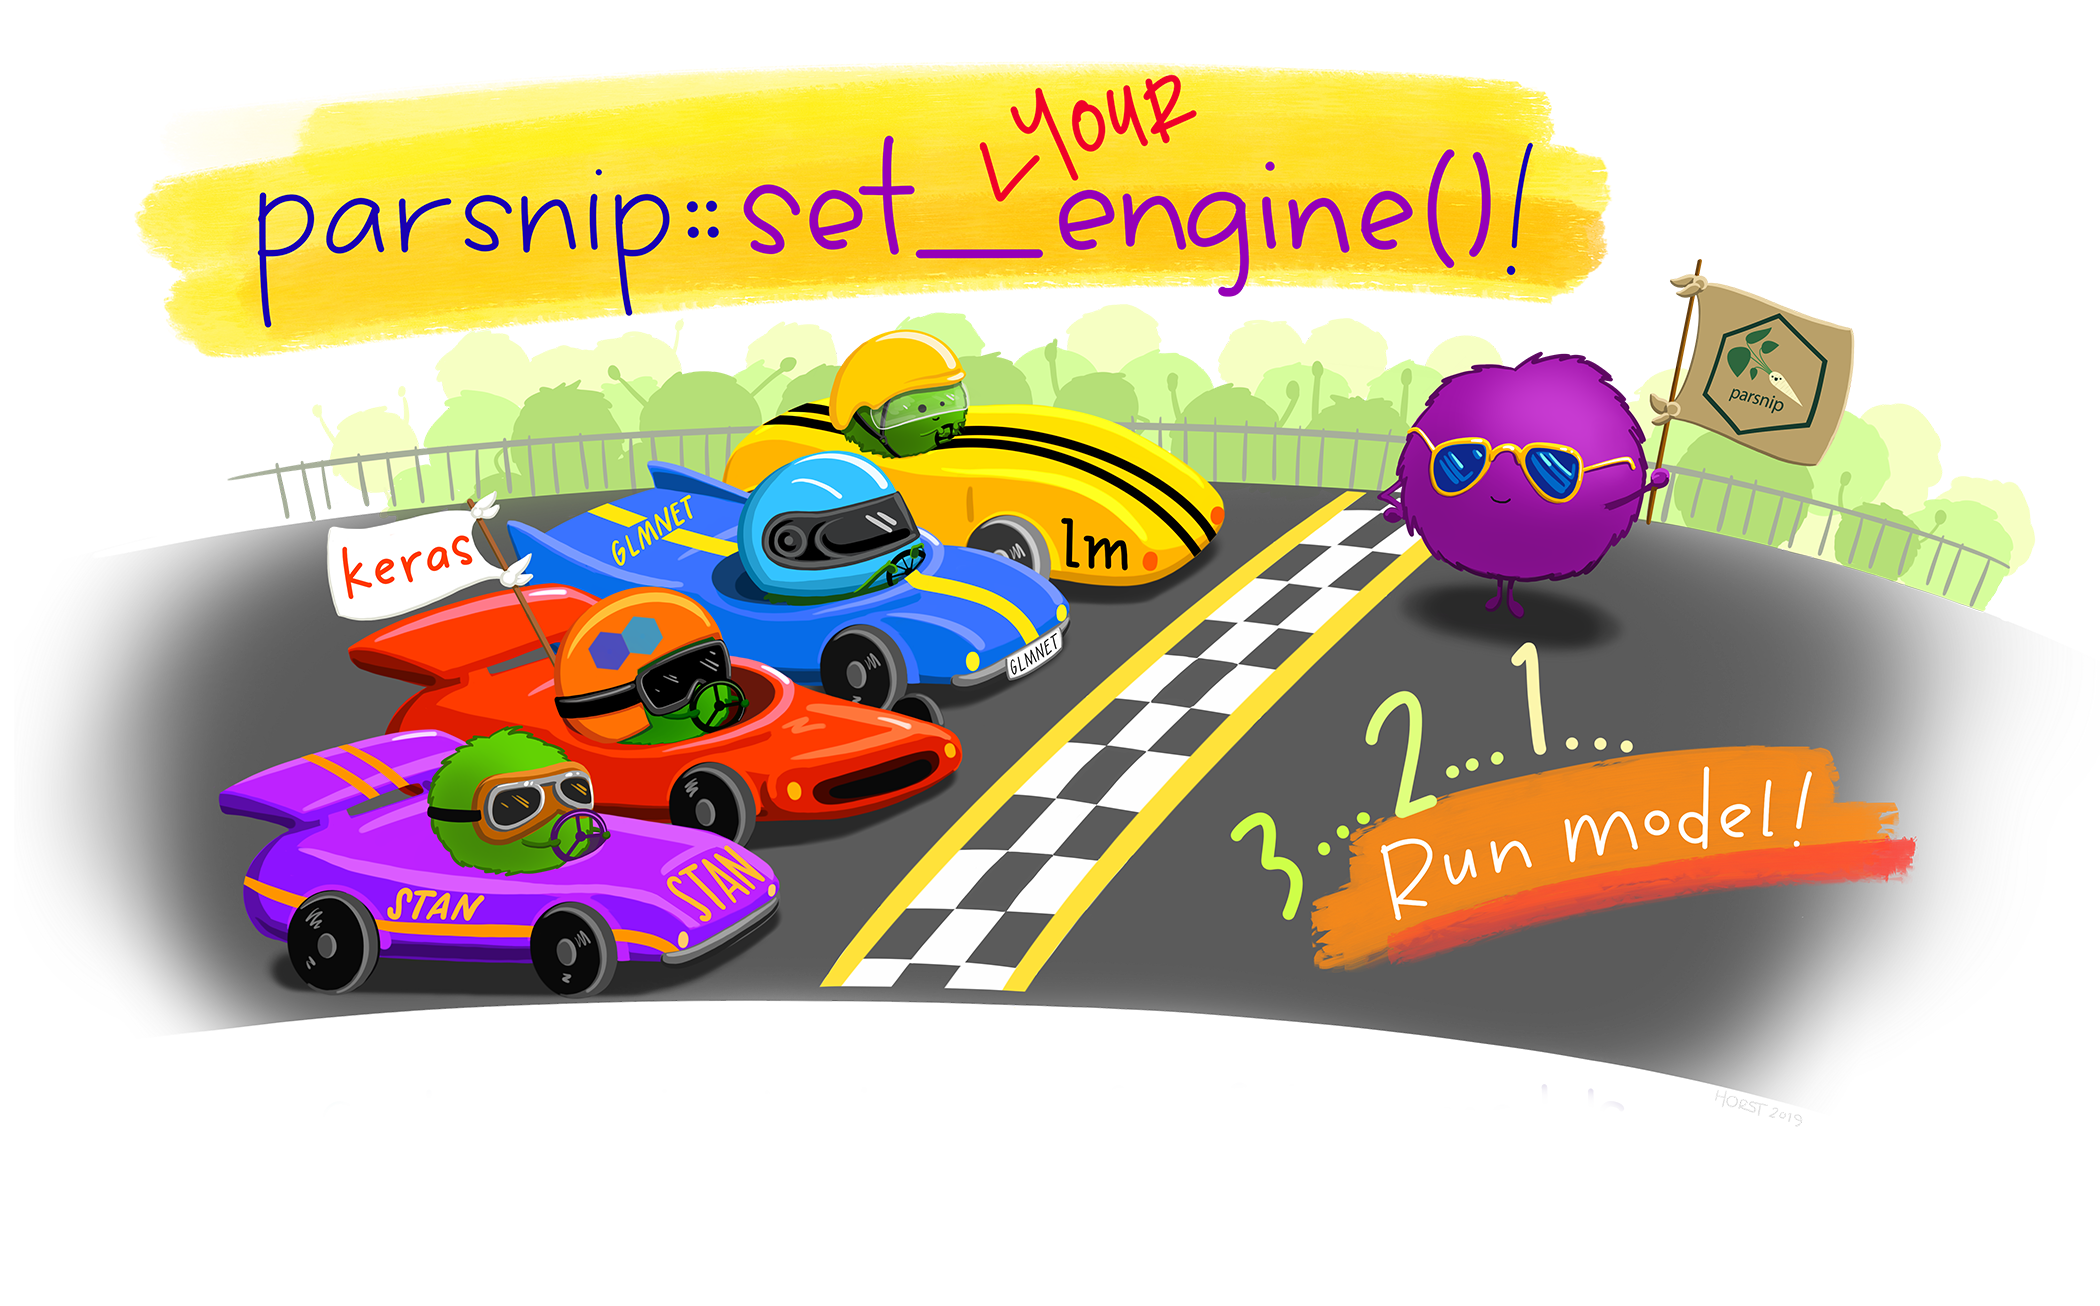 YOUR
parsnip::set_engine()!
parsnip
keras
GLMNET
GLMNET
lm
STAN
STAN
3...2...1...
Run model!
HORST 2019